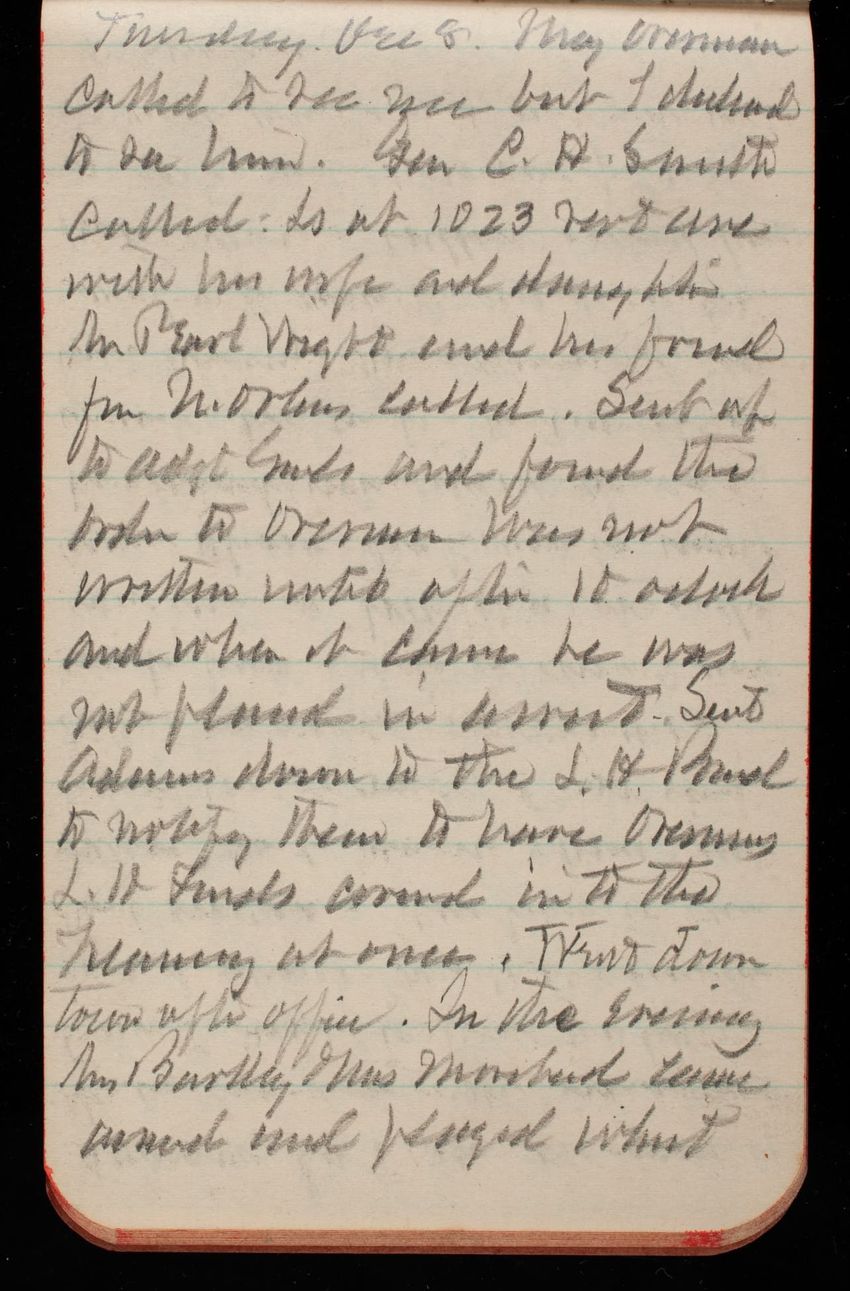 Tuesday. Dec 8. Maj Overman
called to see me but I declined
to see him. Gen C. H. Smith
called. Is at 1023 Vert ave
with his wife and daughter
Mr Pearl Wight and his friend
fm N. Orleans called. Sent up
to Adgt Genls and found the
order to Overman was not
written until after 10 oclock
and when it came he was
not placed in arrest. Sent
Adams down to the L. H. Board
to notify them to have Overmans
L. H funds covered in to the
Treasury at once. Went down
town after office. In the evening
Mrs Bartley & Mrs Morehead came
around and played whist